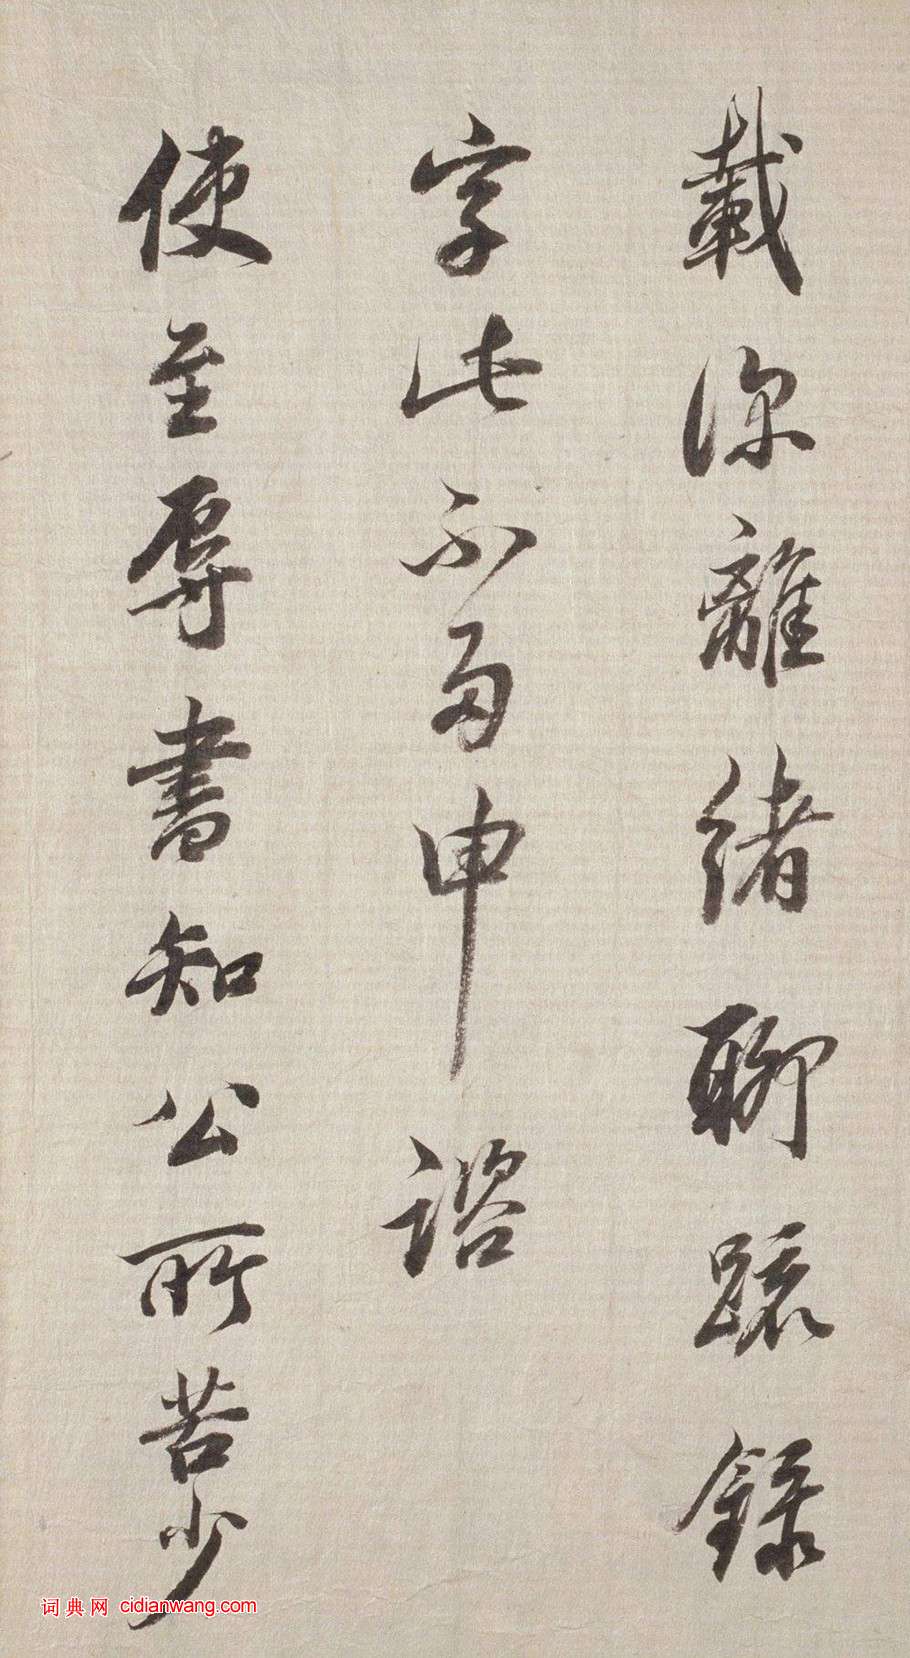 載深離緒聊疏錄
字此不多申諮
使至辱書知公所苦少
词典网 cidianwang.com